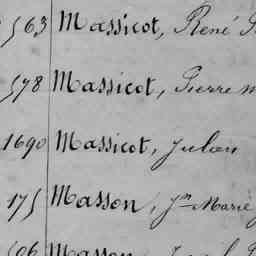 563 Massicot, René
578 Massicot, Pierre
1690 Massicot, Julien
175 Masson, Jn Marie
506 Masson,